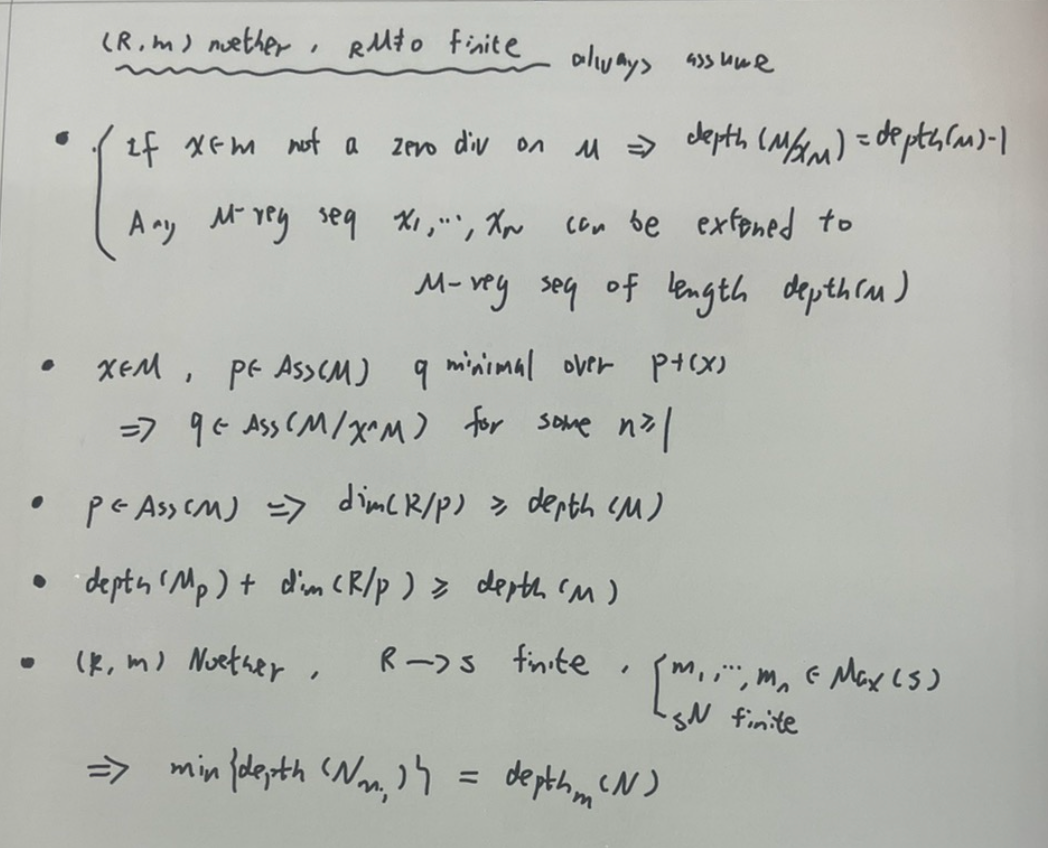 (R, m) noether, RM≠0 finite always assume
• { If x∈m not a zero div on M ⇒ depth(M/xM) = depth(M)-1
Any M-reg seq x1, ⋯, xn can be extened to
M-reg seq of length depth(M)
• x∈M, p∈ Ass(M) q minimal over p+(x)
⇒ q ∈ Ass(M/x^nM) for some n≥1
• p ∈ Ass(M) ⇒ dim(R/p) ≥ depth(M)
• depth(Mp) + dim(R/p) ≥ depth(M)
• (R, m) Noether, R → S finite, { m1, ⋯, mn ∈ Max(S)
SN finite
⇒ min{depth(Nmi)} = depthm(N)